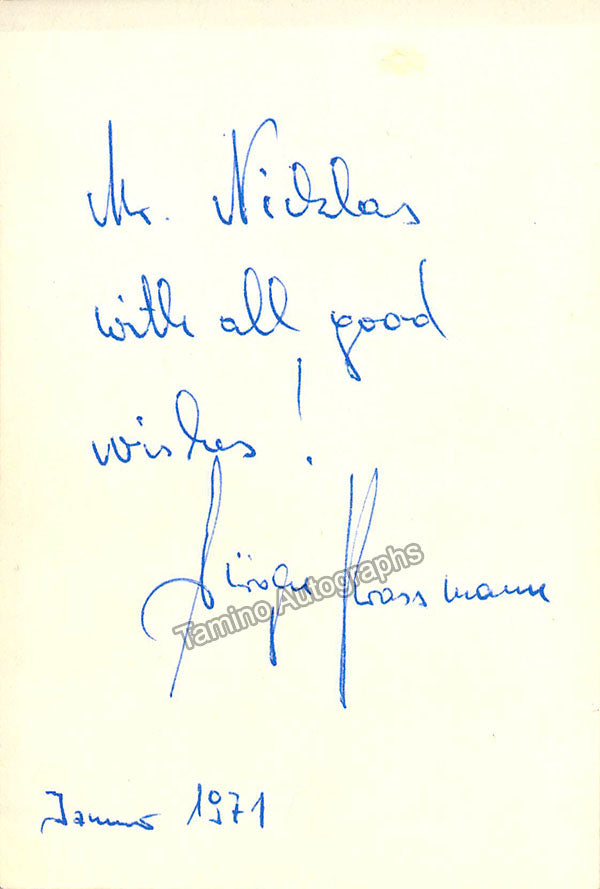 Mr. Nicklas
with all good
wishes!
Jürgen Krassmann
Tamino Autographs
1971